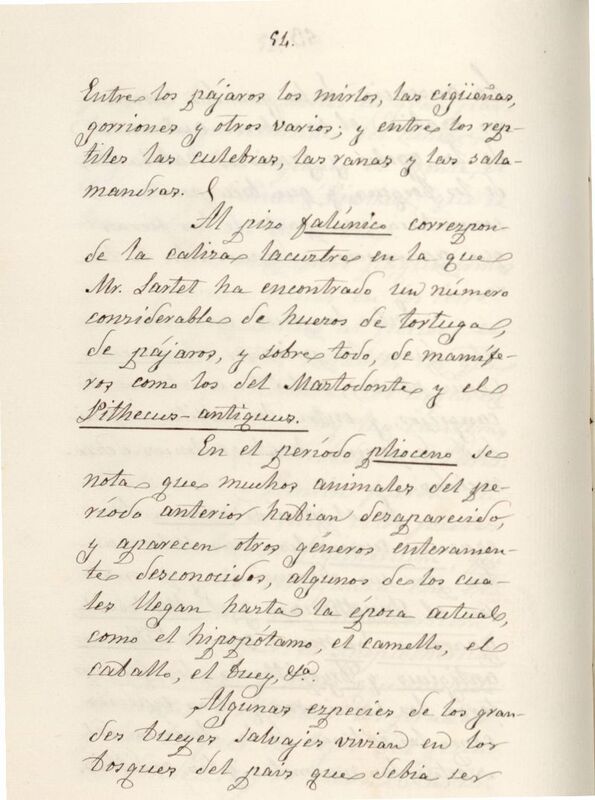 54.
Entre los pájaros los mirlos, las cigüeñas,
gorriones y otros varios; y entre los rep-
tiles las culebras, las ranas y las sala-
mandras.
Al piso falúnico correspon-
de la caliza lacustre en la que
Mr. Lartet ha encontrado un número
considerable de huesos de tortuga,
de pájaros, y sobre todo, de mamífe-
ros como los del Mastodonte y el
Pithecus-antiquus.
En el período plioceno se
nota que muchos animales del pe-
ríodo anterior habian desaparecido,
y aparecen otros géneros enteramen-
te desconocidos, algunos de los cua-
les llegan hasta la época actual,
como el hipopótamo, el camello, el
caballo, el buey, &a.
Algunas especies de los gran-
des bueyes salvajes vivian en los
bosques del pais que debia ser